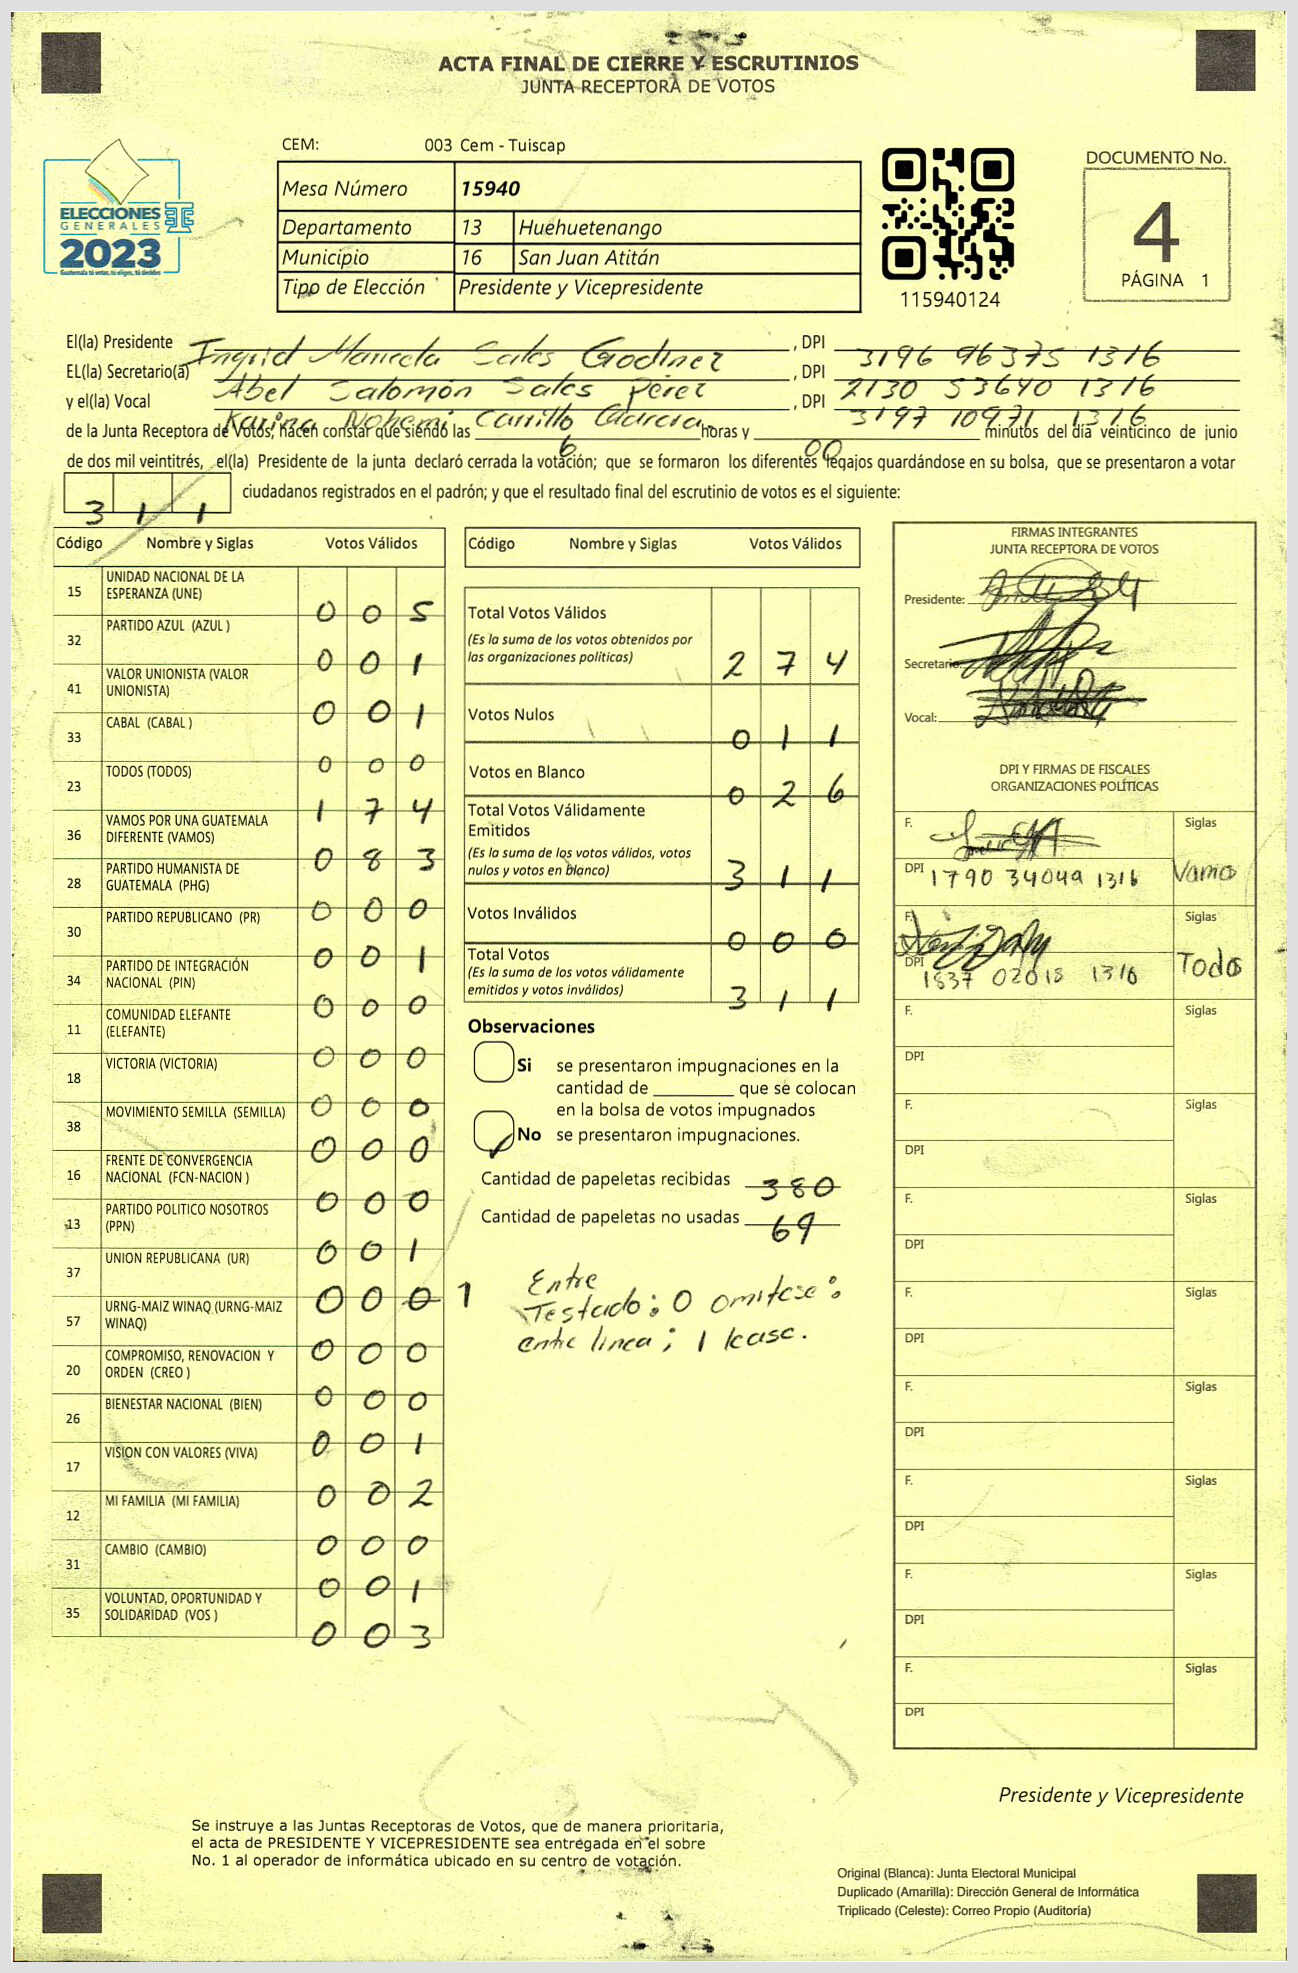 ACTA FINAL DE CIERRE Y ESCRUTINIOS
JUNTA RECEPTORA DE VOTOS
CEM: 003 Cem - Tuiscap
ELECCIONES
GENERALES
2023
Guatemala tú votas, tú eliges, tú decides
Mesa Número 15940
Departamento 13 Huehuetenango
Municipio 16 San Juan Atitán
Tipo de Elección Presidente y Vicepresidente
115940124
DOCUMENTO No.
4
PÁGINA 1
El(la) Presidente Ingrid Maricela Sales Godinez, DPI 3196 96375 1316
EL(la) Secretario(a) Abel Salomón Sales Pérez, DPI 2130 53640 1316
y el(la) Vocal Karina Nohemi Carrillo Garcia, DPI 3197 10971 1316
de la Junta Receptora de Votos, hacen constar que siendo las 6 horas y 00 minutos del día veinticinco de junio
de dos mil veintitrés, el(la) Presidente de la junta declaró cerrada la votación; que se formaron los diferentes legajos quardándose en su bolsa, que se presentaron a votar
311 ciudadanos registrados en el padrón; y que el resultado final del escrutinio de votos es el siguiente:
Código Nombre y Siglas Votos Válidos
15 UNIDAD NACIONAL DE LA ESPERANZA (UNE) 0 0 5
32 PARTIDO AZUL (AZUL ) 0 0 1
41 VALOR UNIONISTA (VALOR UNIONISTA) 0 0 1
33 CABAL (CABAL ) 0 0 0
23 TODOS (TODOS) 1 7 4
36 VAMOS POR UNA GUATEMALA DIFERENTE (VAMOS) 0 8 3
28 PARTIDO HUMANISTA DE GUATEMALA (PHG) 0 0 0
30 PARTIDO REPUBLICANO (PR) 0 0 1
34 PARTIDO DE INTEGRACIÓN NACIONAL (PIN) 0 0 0
11 COMUNIDAD ELEFANTE (ELEFANTE) 0 0 0
18 VICTORIA (VICTORIA) 0 0 0
38 MOVIMIENTO SEMILLA (SEMILLA) 0 0 0
16 FRENTE DE CONVERGENCIA NACIONAL (FCN-NACION ) 0 0 0
13 PARTIDO POLITICO NOSOTROS (PPN) 0 0 1
37 UNION REPUBLICANA (UR) 0 0 0 1
57 URNG-MAIZ WINAQ (URNG-MAIZ WINAQ) 0 0 0
20 COMPROMISO, RENOVACION Y ORDEN (CREO ) 0 0 0
26 BIENESTAR NACIONAL (BIEN) 0 0 1
17 VISION CON VALORES (VIVA) 0 0 2
12 MI FAMILIA (MI FAMILIA) 0 0 0
31 CAMBIO (CAMBIO) 0 0 1
35 VOLUNTAD, OPORTUNIDAD Y SOLIDARIDAD (VOS ) 0 0 3
Código Nombre y Siglas Votos Válidos
Total Votos Válidos
(Es la suma de los votos obtenidos por
las organizaciones políticas) 2 7 4
Votos Nulos 0 1 1
Votos en Blanco 0 2 6
Total Votos Válidamente
Emitidos
(Es la suma de los votos válidos, votos
nulos y votos en blanco) 3 1 1
Votos Inválidos 0 0 0
Total Votos
(Es la suma de los votos válidamente
emitidos y votos inválidos) 3 1 1
Observaciones
Si se presentaron impugnaciones en la
cantidad de ________ que se colocan
en la bolsa de votos impugnados
No se presentaron impugnaciones.
Cantidad de papeletas recibidas 380
Cantidad de papeletas no usadas 69
Entre
Testado: 0 omitase:
entre linea; 1 lease.
FIRMAS INTEGRANTES
JUNTA RECEPTORA DE VOTOS
Presidente:
Secretario:
Vocal:
DPI Y FIRMAS DE FISCALES
ORGANIZACIONES POLÍTICAS
F. Siglas
DPI 1790 34049 1316 Vamo
F. Siglas
DPI 1837 02018 1316 Todo
F. Siglas
DPI
F. Siglas
DPI
F. Siglas
DPI
F. Siglas
DPI
F. Siglas
DPI
F. Siglas
DPI
F. Siglas
DPI
F. Siglas
DPI
Presidente y Vicepresidente
Se instruye a las Juntas Receptoras de Votos, que de manera prioritaria,
el acta de PRESIDENTE Y VICEPRESIDENTE sea entregada en el sobre
No. 1 al operador de informática ubicado en su centro de votación.
Original (Blanca): Junta Electoral Municipal
Duplicado (Amarilla): Dirección General de Informática
Triplicado (Celeste): Correo Propio (Auditoría)